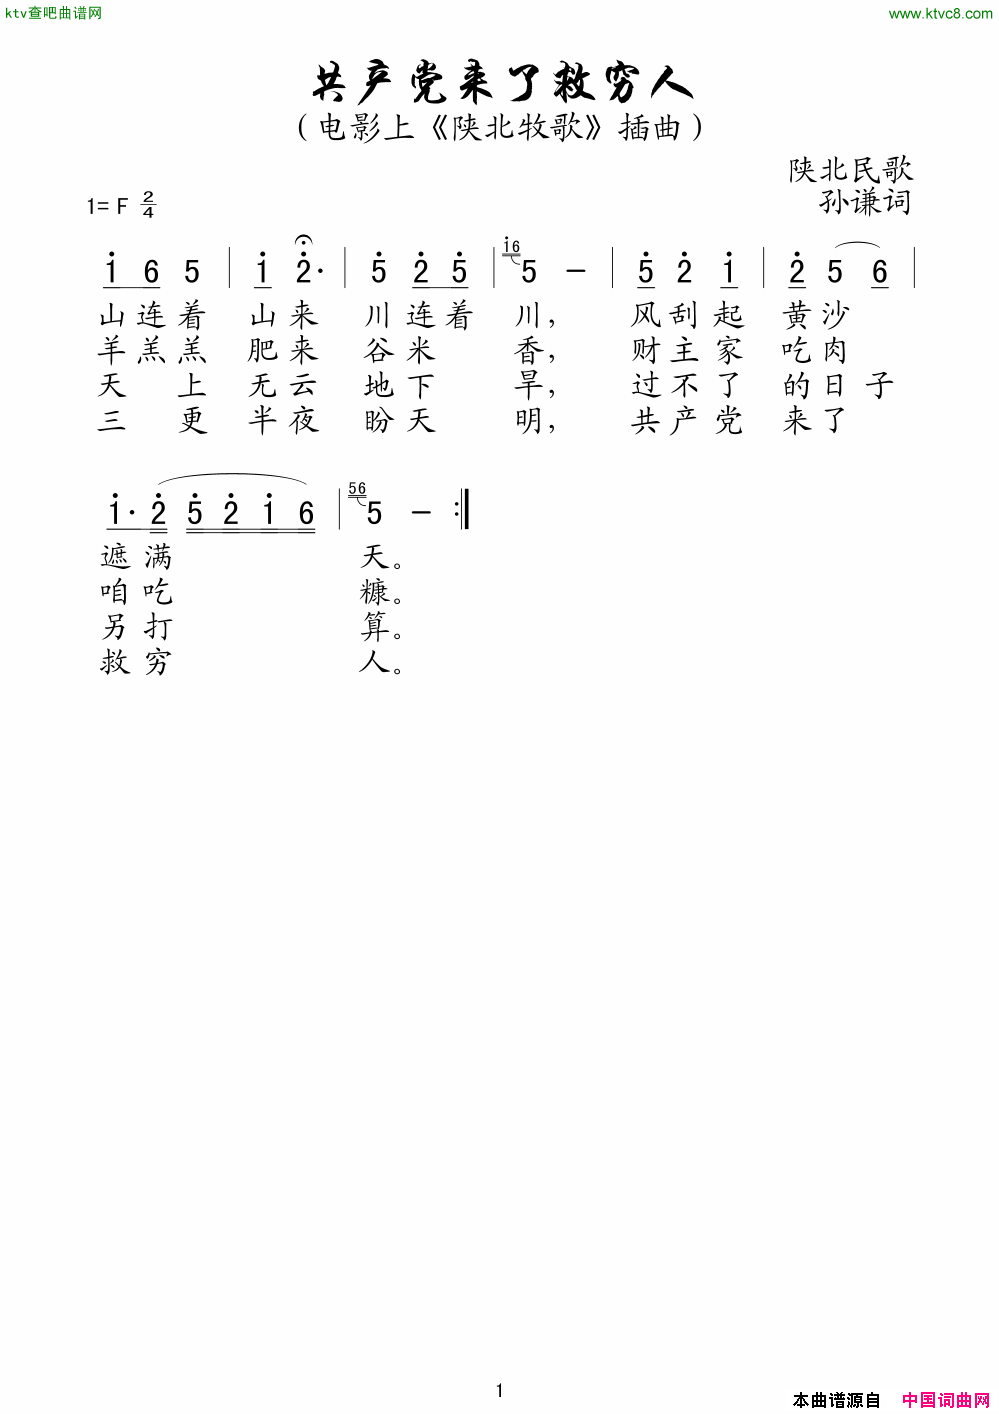 ktv查吧曲谱网
www.ktvc8.com
共产党来了救穷人
（电影上《陕北牧歌》插曲）
陕北民歌
1= F 2/4
孙谦词
i 6 5 | i 2̇· | 5̇ 2̇ 5̇ | i6 5 － | 5̇ 2̇ i | 2̇ 5 6 |
山连着 山来 川连着 川， 风刮起 黄沙
羊羔羔 肥来 谷米 香， 财主家 吃肉
天 上 无云 地下 旱， 过不了 的日子
三 更 半夜 盼天 明， 共产党 来了
i· 2̇ 5̇ 2̇ i 6 | 56 5 － :‖
遮满 天。
咱吃 糠。
另打 算。
救穷 人。
1
本曲谱源自 中国词曲网